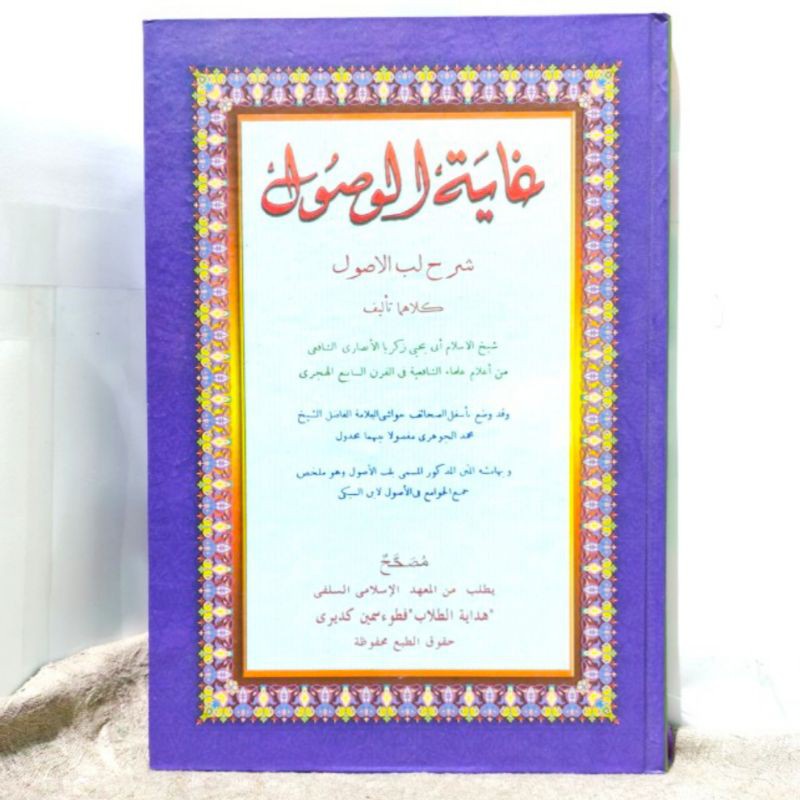 غاية الوصول
شرح لب الاصول
كلاهما تأليف
شيخ الاسلام أبى يحيى زكريا الأنصارى الشافعى
من أعلام علماء الشافعية فى القرن التاسع الهجرى
وقد وضع بأسفل الصحائف حواشى العلامة الفاضل الشيخ
محمد الجوهرى مفصولا بينهما بجدول
وبهامشه المتن المذكور المسمى لب الأصول وهو ملخص
جمع الجوامع فى الأصول لابن السبكى
مُصَحَّحٌ
يطلب من المعهد الإسلامى السلفى
"هداية الطلاب" فطوء سمين كديرى
حقوق الطبع محفوظة